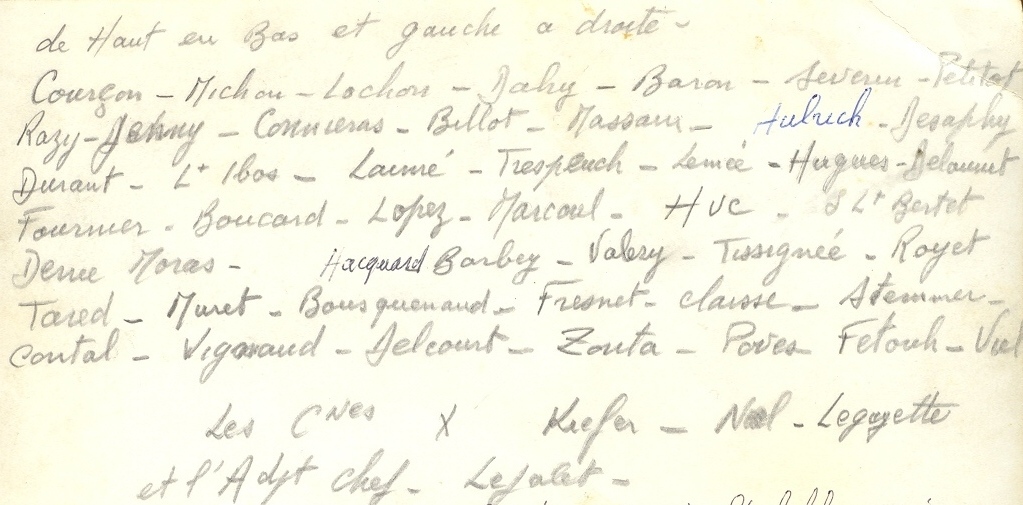 de Haut en Bas et gauche a droite -
Courçon - Michon - Lochon - Dahy - Baron - Severin - Petitot
Razy - Jehny - Connieras - Billot - Massaux - Hulrich - Desaphy
Durant - Lt Ibos - Laumé - Trespeuch - Lemée - Hugues - Delaunut
Fournier - Boucard - Lopez - Marcoul - Huc - S Lt Bertet
Moras - Hacquard Barbey - Valery - Tissignéé - Royet
Tared - Muret - Bousquenaud - Fresnet - Claisse - Stemmer -
Contal - Vignaud - Delcourt - Zonta - Poves Fetouh - Viel
Les Cnes X Kiefer - Noel - Legayette
et l'Adjt Chef - Lejalet -